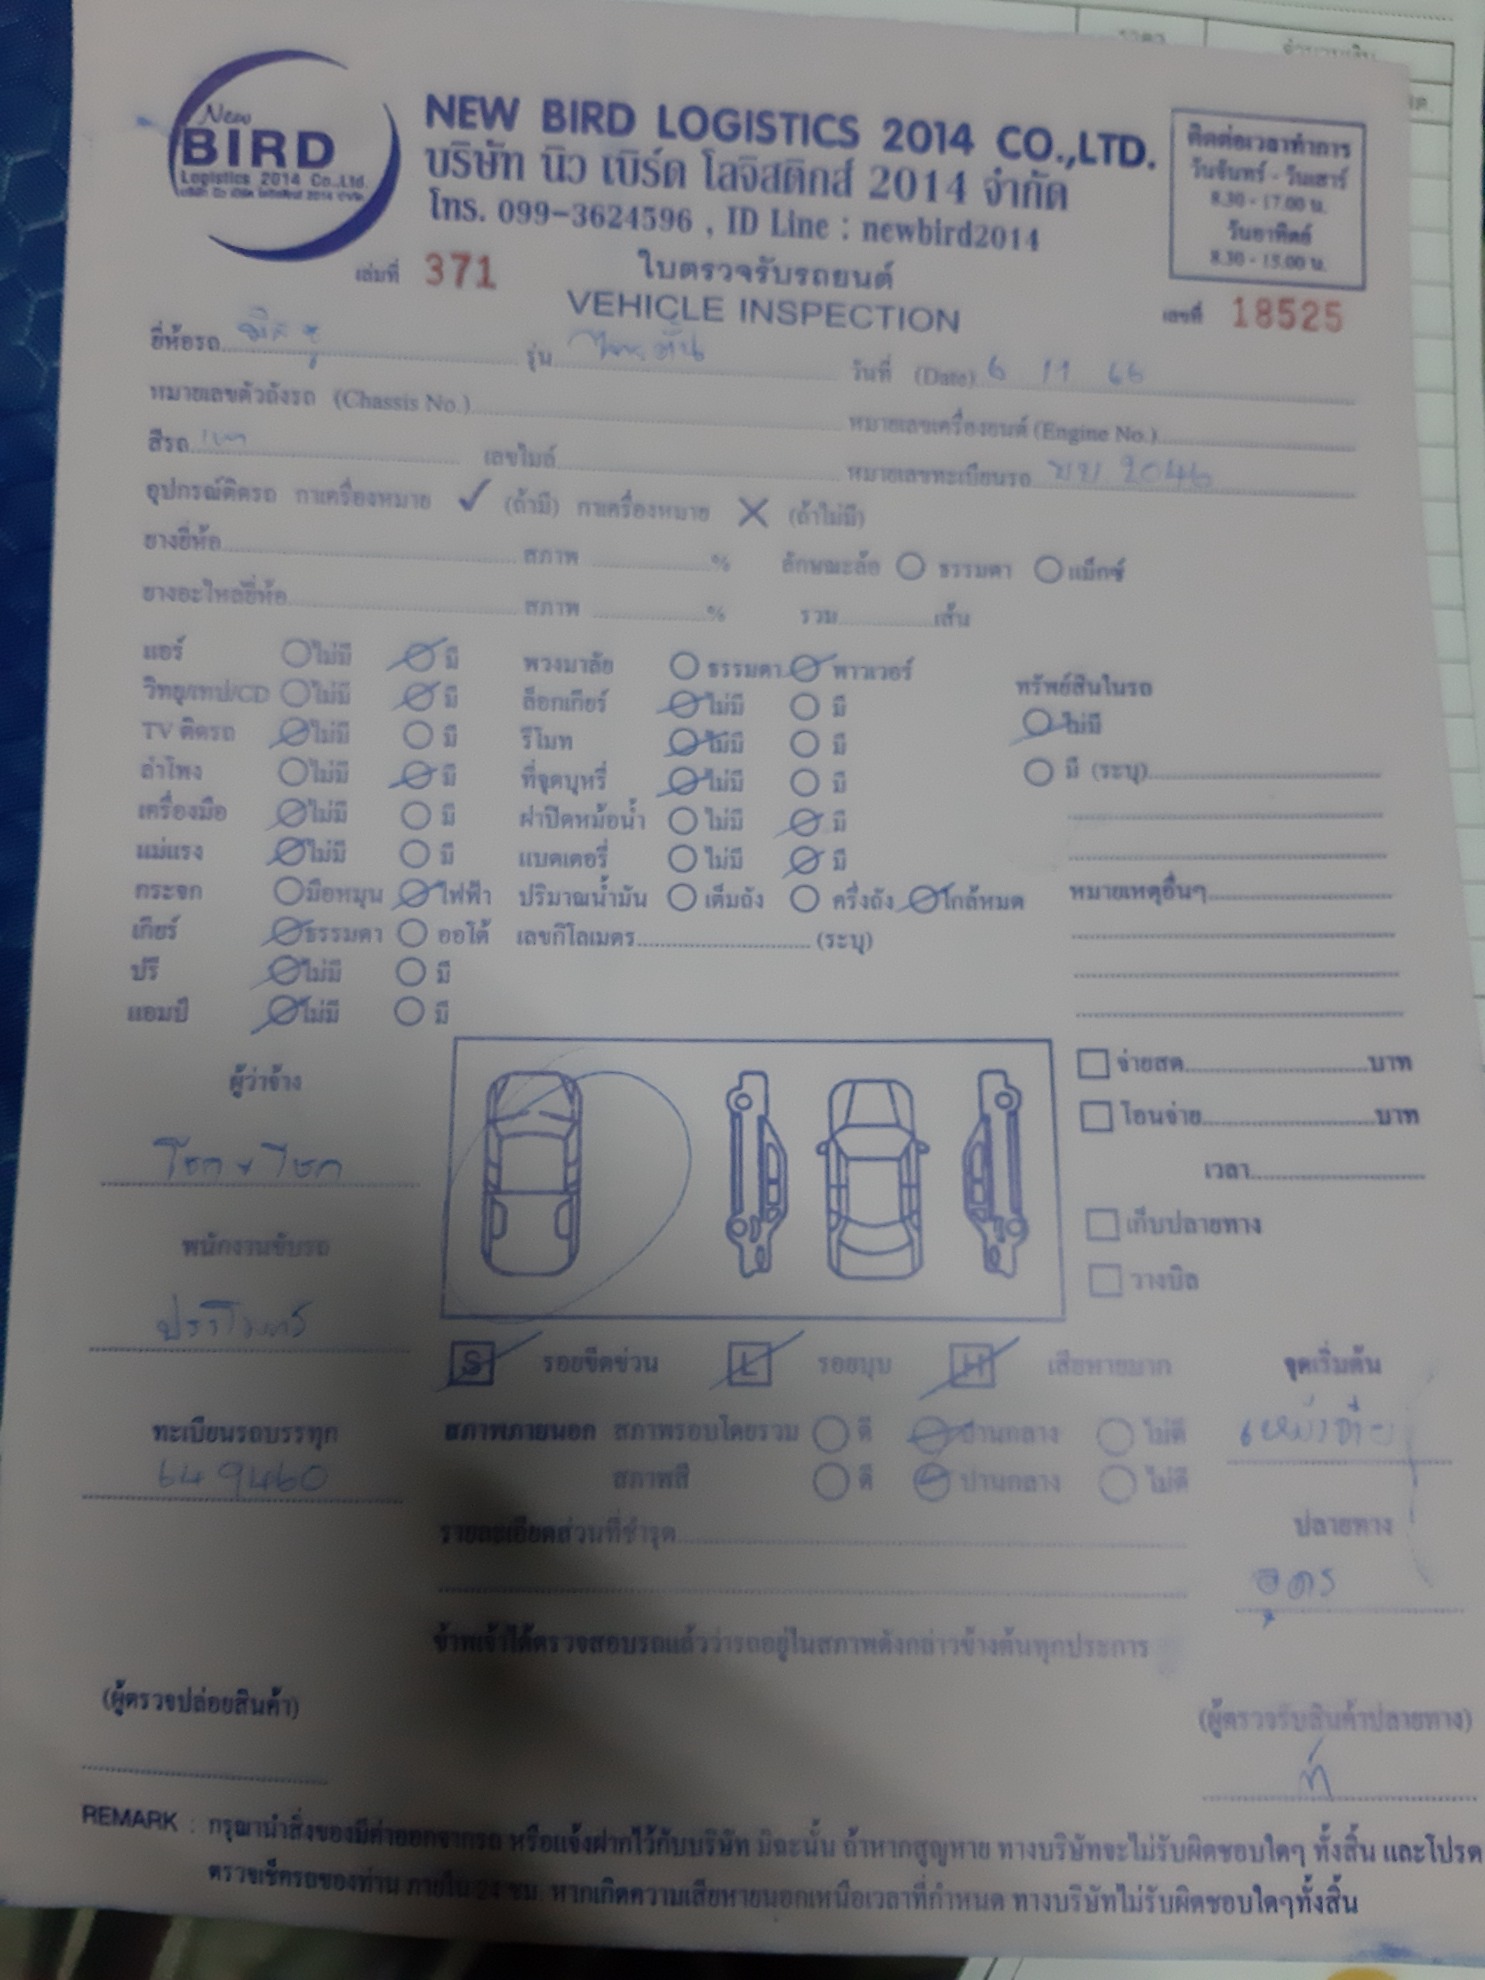 New
BIRD
Logistics 2014 Co.,Ltd.
NEW BIRD LOGISTICS 2014 CO.,LTD.
บริษัท นิว เบิร์ด โลจิสติกส์ 2014 จำกัด
โทร. 099-3624596 , ID Line : newbird2014
ติดต่อเวลาทำการ
วันจันทร์ - วันเสาร์
8.30 - 17.00 น.
วันอาทิตย์
8.30 - 15.00 น.
เล่มที่ 371
ใบตรวจรับรถยนต์
VEHICLE INSPECTION
เลขที่ 18525
ยี่ห้อรถ มิตซู รุ่น ไทรทัน วันที่ (Date) 6 11 66
หมายเลขตัวถังรถ (Chassis No.) หมายเลขเครื่องยนต์ (Engine No.)
สีรถ เทา เลขไมล์ หมายเลขทะเบียนรถ 2046
อุปกรณ์ติดรถ กาเครื่องหมาย ✓ (ถ้ามี) กาเครื่องหมาย ✕ (ถ้าไม่มี)
ยางยี่ห้อ สภาพ % ลักษณะล้อ ธรรมดา แม็กซ์
ยางอะไหล่ยี่ห้อ สภาพ % รวม เส้น
แอร์ ไม่มี มี พวงมาลัย ธรรมดา พาวเวอร์
วิทยุ/เทป/CD ไม่มี มี ล็อกเกียร์ ไม่มี มี
TV ติดรถ ไม่มี มี รีโมท ไม่มี มี
ลำโพง ไม่มี มี ที่จุดบุหรี่ ไม่มี มี
เครื่องมือ ไม่มี มี ฝาปิดหม้อน้ำ ไม่มี มี
แม่แรง ไม่มี มี แบตเตอรี่ ไม่มี มี
กระจก มือหมุน ไฟฟ้า ปริมาณน้ำมัน เต็มถัง ครึ่งถัง ใกล้หมด
เกียร์ ธรรมดา ออโต้ เลขกิโลเมตร (ระบุ)
ปรี ไม่มี มี
แอมป์ ไม่มี มี
ทรัพย์สินในรถ
ไม่มี
มี (ระบุ)
หมายเหตุอื่นๆ
ผู้ว่าจ้าง
พนักงานขับรถ
ทะเบียนรถบรรทุก
649460
จ่ายสด บาท
โอนจ่าย บาท
เวลา
เก็บปลายทาง
วางบิล
S รอยขีดข่วน L รอยบุบ H เสียหายมาก
สภาพภายนอก สภาพรอบโดยรวม ดี ปานกลาง ไม่ดี
สภาพสี ดี ปานกลาง ไม่ดี
รายละเอียดส่วนที่ชำรุด
จุดเริ่มต้น
ปลายทาง
อุดร
ข้าพเจ้าได้ตรวจสอบรถแล้วว่ารถอยู่ในสภาพดังกล่าวข้างต้นทุกประการ
(ผู้ตรวจปล่อยสินค้า)
(ผู้ตรวจรับสินค้าปลายทาง)
REMARK : กรุณานำสิ่งของมีค่าออกจากรถ หรือแจ้งฝากไว้กับบริษัท มิฉะนั้น ถ้าหากสูญหาย ทางบริษัทจะไม่รับผิดชอบใดๆ ทั้งสิ้น และโปรด
ตรวจเช็ครถของท่าน ภายใน 24 ชม. หากเกิดความเสียหายนอกเหนือเวลาที่กำหนด ทางบริษัทไม่รับผิดชอบใดๆทั้งสิ้น